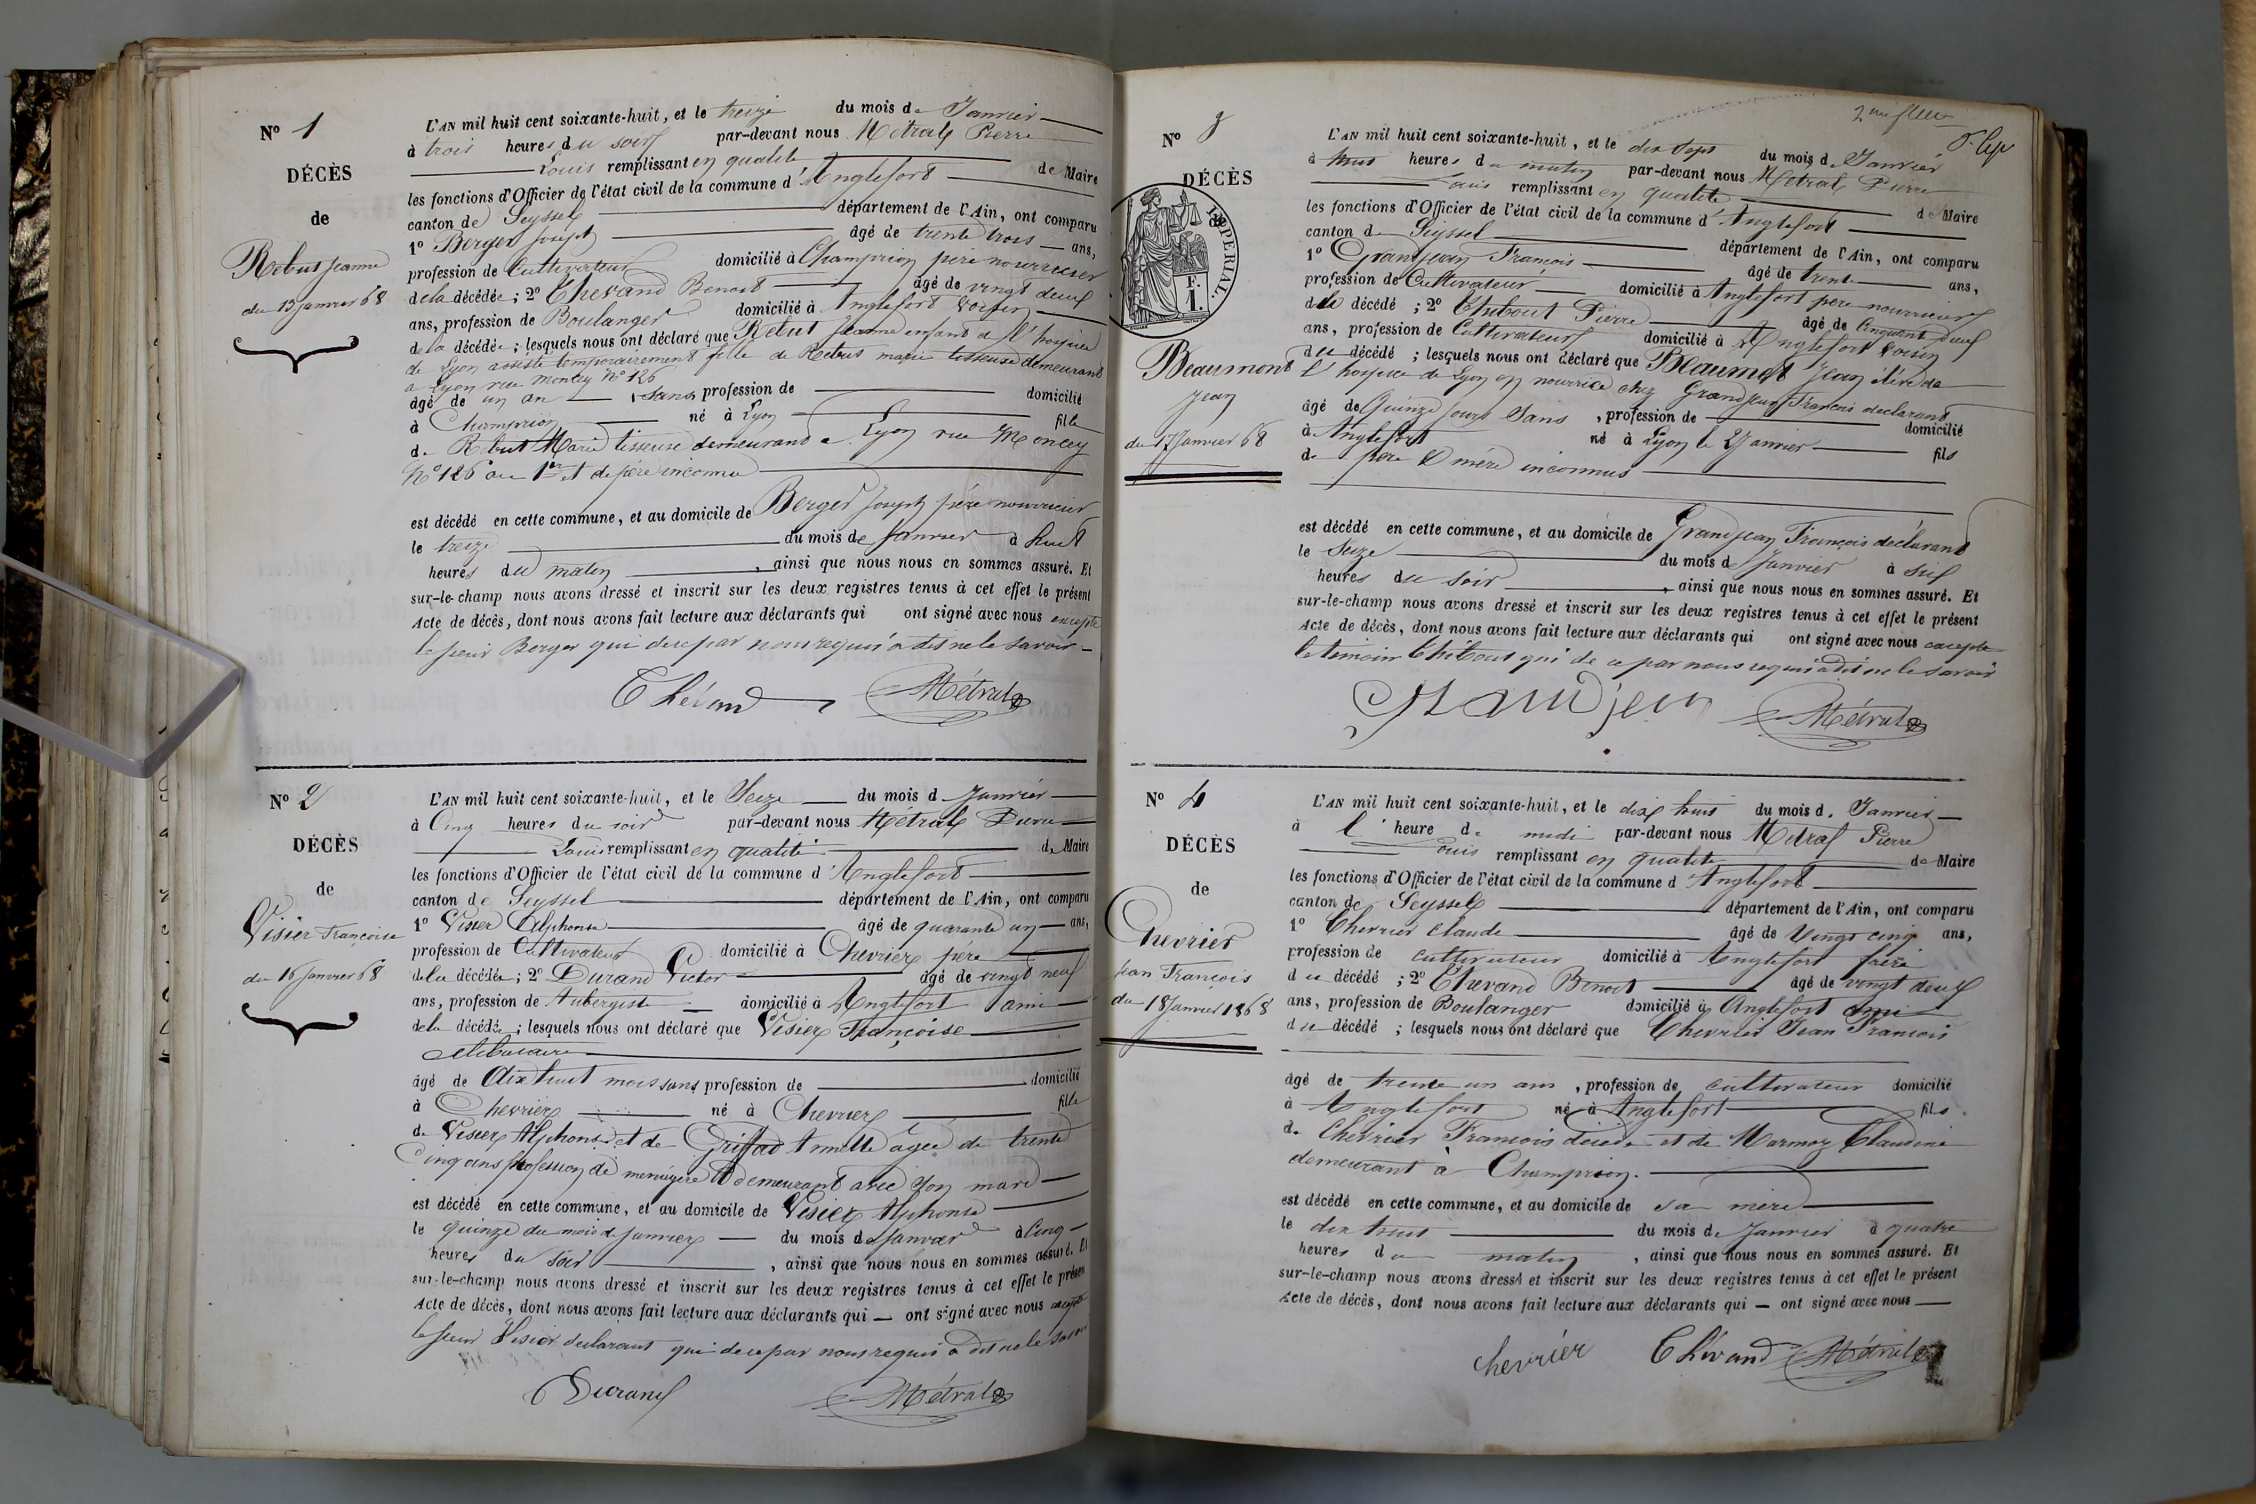 Nº 1
DÉCÈS
de
Rebut Jeanne
du 13 janvier 68
L'AN mil huit cent soixante-huit, et le treize du mois de Janvier
à trois heures du soir par-devant nous Métral Pierre
Louis remplissant en qualité de Maire
les fonctions d'Officier de l'état civil de la commune d'Anglefort
canton de Seyssel département de l'Ain, ont comparu
1º Berger Joseph âgé de trente trois ans,
profession de Cultivateur domicilié à Champrion père nourricier
de la décédée ; 2º Thévand Benoit âgé de vingt deux
ans, profession de Boulanger domicilié à Anglefort voisin
de la décédée ; lesquels nous ont déclaré que Rebut Jeanne enfant de l'hospice
de Lyon assisté temporairement fille de Rebut marie tisseuse demeurant
a Lyon rue Moncey nº 126
âgé de un an , sans profession de domicilié
à Champrion né à Lyon fille
de Rebut Marie tisseuse demeurant a Lyon rue Moncey
Nº 126 au 1er et de père inconnu
est décédé en cette commune, et au domicile de Berger Joseph père nourricier
le treize du mois de Janvier à huit
heures du matin , ainsi que nous nous en sommes assuré. Et
sur-le-champ nous avons dressé et inscrit sur les deux registres tenus à cet effet le présent
Acte de décès, dont nous avons fait lecture aux déclarants qui ont signé avec nous excepté
le sieur Berger qui de ce par nous requis a dit ne le savoir
Thévand Métral
Nº 2
DÉCÈS
de
Visier Françoise
du 16 janvier 68
L'AN mil huit cent soixante-huit, et le Seize du mois d Janvier
à Cinq heures du soir par-devant nous Métral Pierre
Louis remplissant en qualité de Maire
les fonctions d'Officier de l'état civil de la commune d'Anglefort
canton de Seyssel département de l'Ain, ont comparu
1º Visier Alphonse âgé de quarante un ans,
profession de Cultivateur domicilié à Chevrier père
de la décédée ; 2º Durand Victor âgé de vingt neuf
ans, profession de Aubergiste domicilié à Anglefort ami
de la décédée ; lesquels nous ont déclaré que Visier Françoise
célibataire
âgé de dix huit mois sans profession de domicilié
à Chevrier né à Chevrier fille
de Visier Alphonse et de Griffad Annette agée de trente
Cinq ans profession de menagère demeurant avec son mari
est décédé en cette commune, et au domicile de Visier Alphonse
le quinze du mois de Janvier du mois de Janvier à Cinq
heures du soir , ainsi que nous nous en sommes assuré. Et
sur-le-champ nous avons dressé et inscrit sur les deux registres tenus à cet effet le présent
Acte de décès, dont nous avons fait lecture aux déclarants qui — ont signé avec nous excepté
le sieur Visier declarant qui de ce par nous requis a dit ne le savoir
Durand Métral
Nº 3
DÉCÈS
IMPERIAL.
F.
1.
Beaumont
Jean
du 17 Janvier 68
L'AN mil huit cent soixante-huit, et le dix sept du mois d Janvier
à huit heures du matin par-devant nous Métral Pierre
Louis remplissant en qualité de Maire
les fonctions d'Officier de l'état civil de la commune d'Anglefort
canton de Seyssel département de l'Ain, ont comparu
1º Grandjean François âgé de trente ans,
profession de Cultivateur domicilié à Anglefort père nourricier
du décédé ; 2º Thibout Pierre âgé de Cinquante deux
ans, profession de Cultivateur domicilié à Anglefort voisin
du décédé ; lesquels nous ont déclaré que Beaumont Jean élève de
l'hospice de Lyon en nourrice chez Grandjean François declarant
âgé de Quinze jours Sans , profession de domicilié
à Anglefort né à Lyon le 2 Janvier fils
de père & mère inconnus
est décédé en cette commune, et au domicile de Grandjean François déclarant
le Seize du mois de Janvier à six
heures du Soir , ainsi que nous nous en sommes assuré. Et
sur-le-champ nous avons dressé et inscrit sur les deux registres tenus à cet effet le présent
Acte de décès, dont nous avons fait lecture aux déclarants qui ont signé avec nous excepté
le témoin Thibout qui de ce par nous requis a dit ne le savoir
Grandjean Métral
Nº 4
DÉCÈS
de
Chevrier
Jean François
du 18 Janvier 1868
L'AN mil huit cent soixante-huit, et le dix huit du mois de Janvier
à l'heure de midi par-devant nous Métral Pierre
Louis remplissant en qualité de Maire
les fonctions d'Officier de l'état civil de la commune d'Anglefort
canton de Seyssel département de l'Ain, ont comparu
1º Chevrier Claude âgé de Vingt cinq ans,
profession de cultivateur domicilié à Anglefort frère
du décédé ; 2º Thévand Benoit âgé de vingt deux
ans, profession de Boulanger domicilié à Anglefort ami
du décédé ; lesquels nous ont déclaré que Chevrier Jean François
âgé de trente un ans , profession de cultivateur domicilié
à Anglefort né à Anglefort fils
de Chevrier François décédé et de Marmoz Claudine
demeurant à Champrion.
est décédé en cette commune, et au domicile de sa mère
le dix huit du mois de Janvier à quatre
heures du matin , ainsi que nous nous en sommes assuré. Et
sur-le-champ nous avons dressé et inscrit sur les deux registres tenus à cet effet le présent
Acte de décès, dont nous avons fait lecture aux déclarants qui — ont signé avec nous —
chevrier Thévand Métral